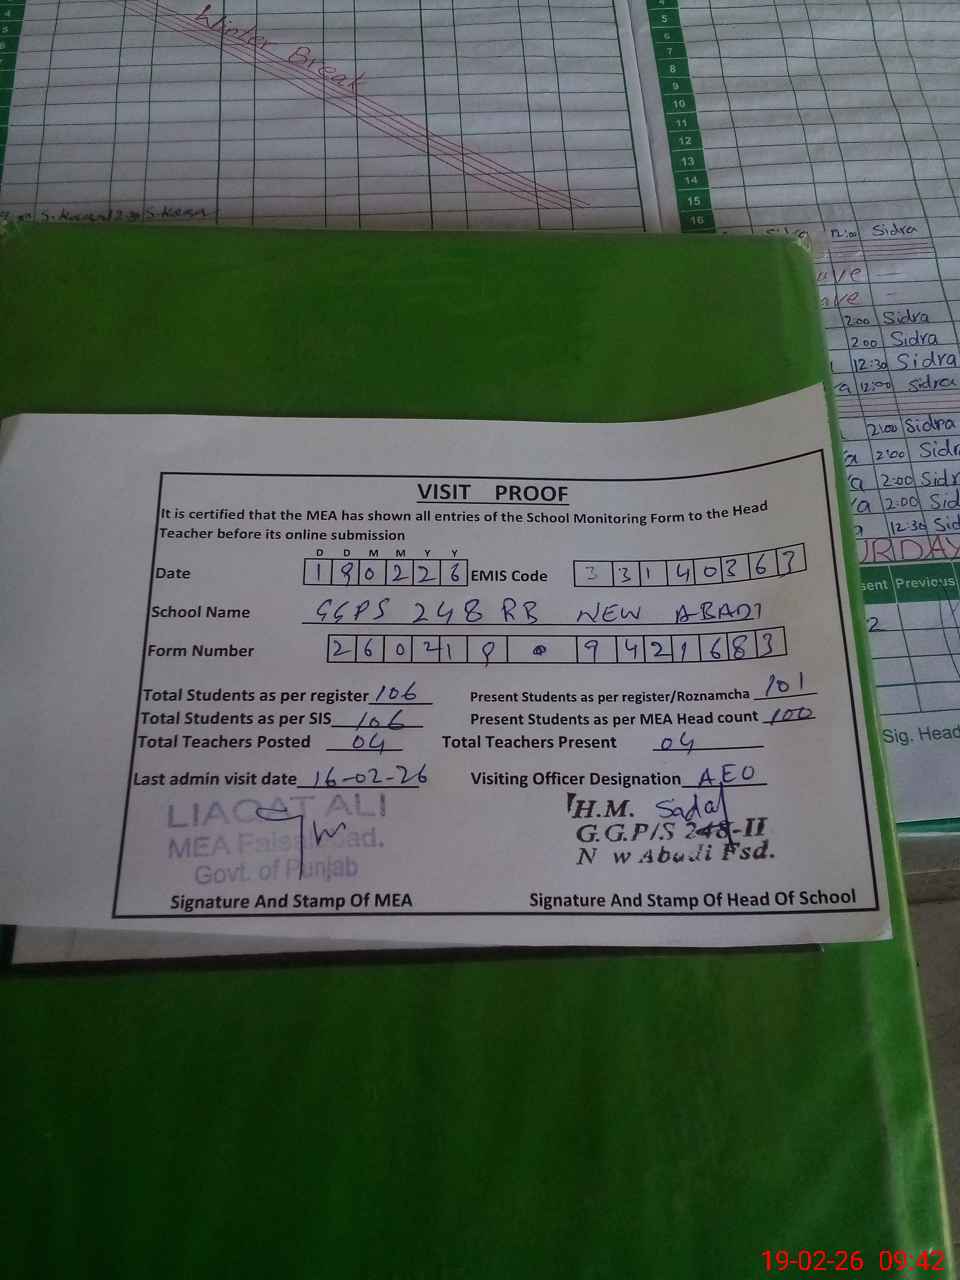 4
5
6
Winter Break
4
5
6
7
8
9
10
11
12
13
14
15
16
12:00 Sidra
2:00 Sidra
2:00 Sidra
12:30 Sidra
12:00 Sidra
2:00 Sidra
2:00 Sidr
2:00 Sidr
2:00 Sid
12:30 Sid
URDAY
sent Previous
2
Sig. Head
VISIT PROOF
It is certified that the MEA has shown all entries of the School Monitoring Form to the Head
Teacher before its online submission
D D M M Y Y
Date 190226 EMIS Code 33140367
School Name GGPS 248 RB NEW ABADI
Form Number
Total Students as per register 106 Present Students as per register/Roznamcha 101
Total Students as per SIS 106 Present Students as per MEA Head count 100
Total Teachers Posted 04 Total Teachers Present 04
Last admin visit date 16-02-26 Visiting Officer Designation AEO
LIAQAT ALI
MEA Faisalabad.
Govt. of Punjab
H.M. Sadaf
G.G.P/S 248-II
N w Abadi Fsd.
Signature And Stamp Of MEA Signature And Stamp Of Head Of School
19-02-26 09:42